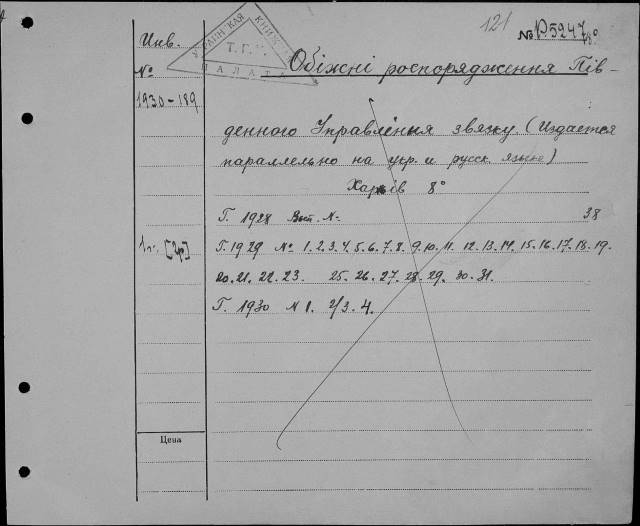 121
№ Р5247
УКРАИНСКАЯ КНИЖНАЯ ПАЛАТА
Т.Г.
Инв.
№
1930-189
Обіжні роспорядження Пів-
денного Управління звязку (Издается
параллельно на укр. и русск. языке)
Харків 8°
Г. 1928 Вып. №- 38
Г. 1929 № 1. 2. 3. 4. 5. 6. 7. 8. 9. 10. 11. 12. 13. 14. 15. 16. 17. 18. 19.
20. 21. 22. 23. 25. 26. 27. 28. 29. 30. 31.
Г. 1930 N 1. 2/3. 4.
Цена